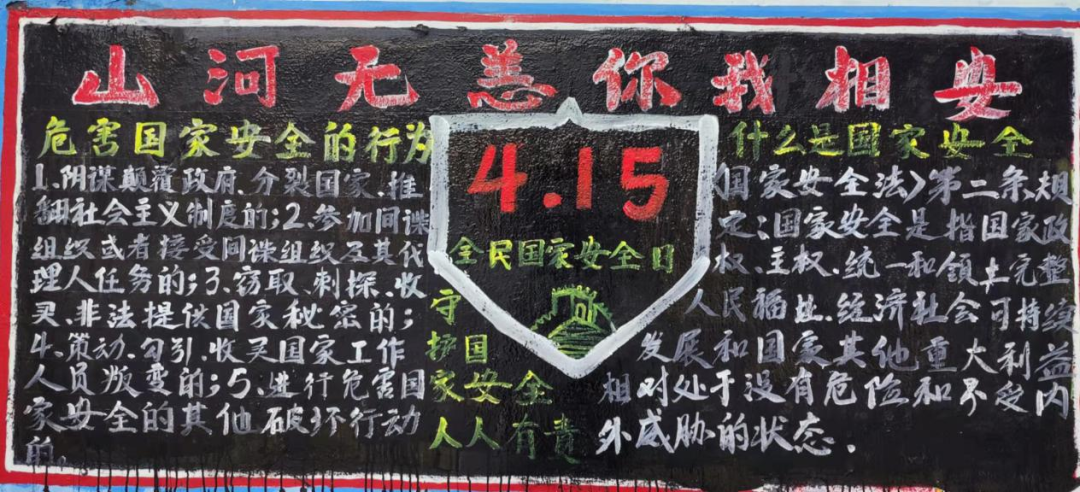 山河无恙你我相安
危害国家安全的行为
1、阴谋颠覆政府、分裂国家、推
翻社会主义制度的;2、参加间谍
组织或者接受间谍组织及其代
理人任务的;3、窃取、刺探、收
买、非法提供国家秘密的;
4、策动、勾引、收买国家工作
人员叛变的;5、进行危害国
家安全的其他破坏行动
的。
4.15
全民国家安全日
守
护国
家安全
人人有责
什么是國家安全
《国家安全法》第二条规
定:国家安全是指国家政
权、主权、统一和领土完整
人民福址、经济社会可持续
发展和国家其他重大利益
相对处于没有危险和不受内
外威胁的状态.